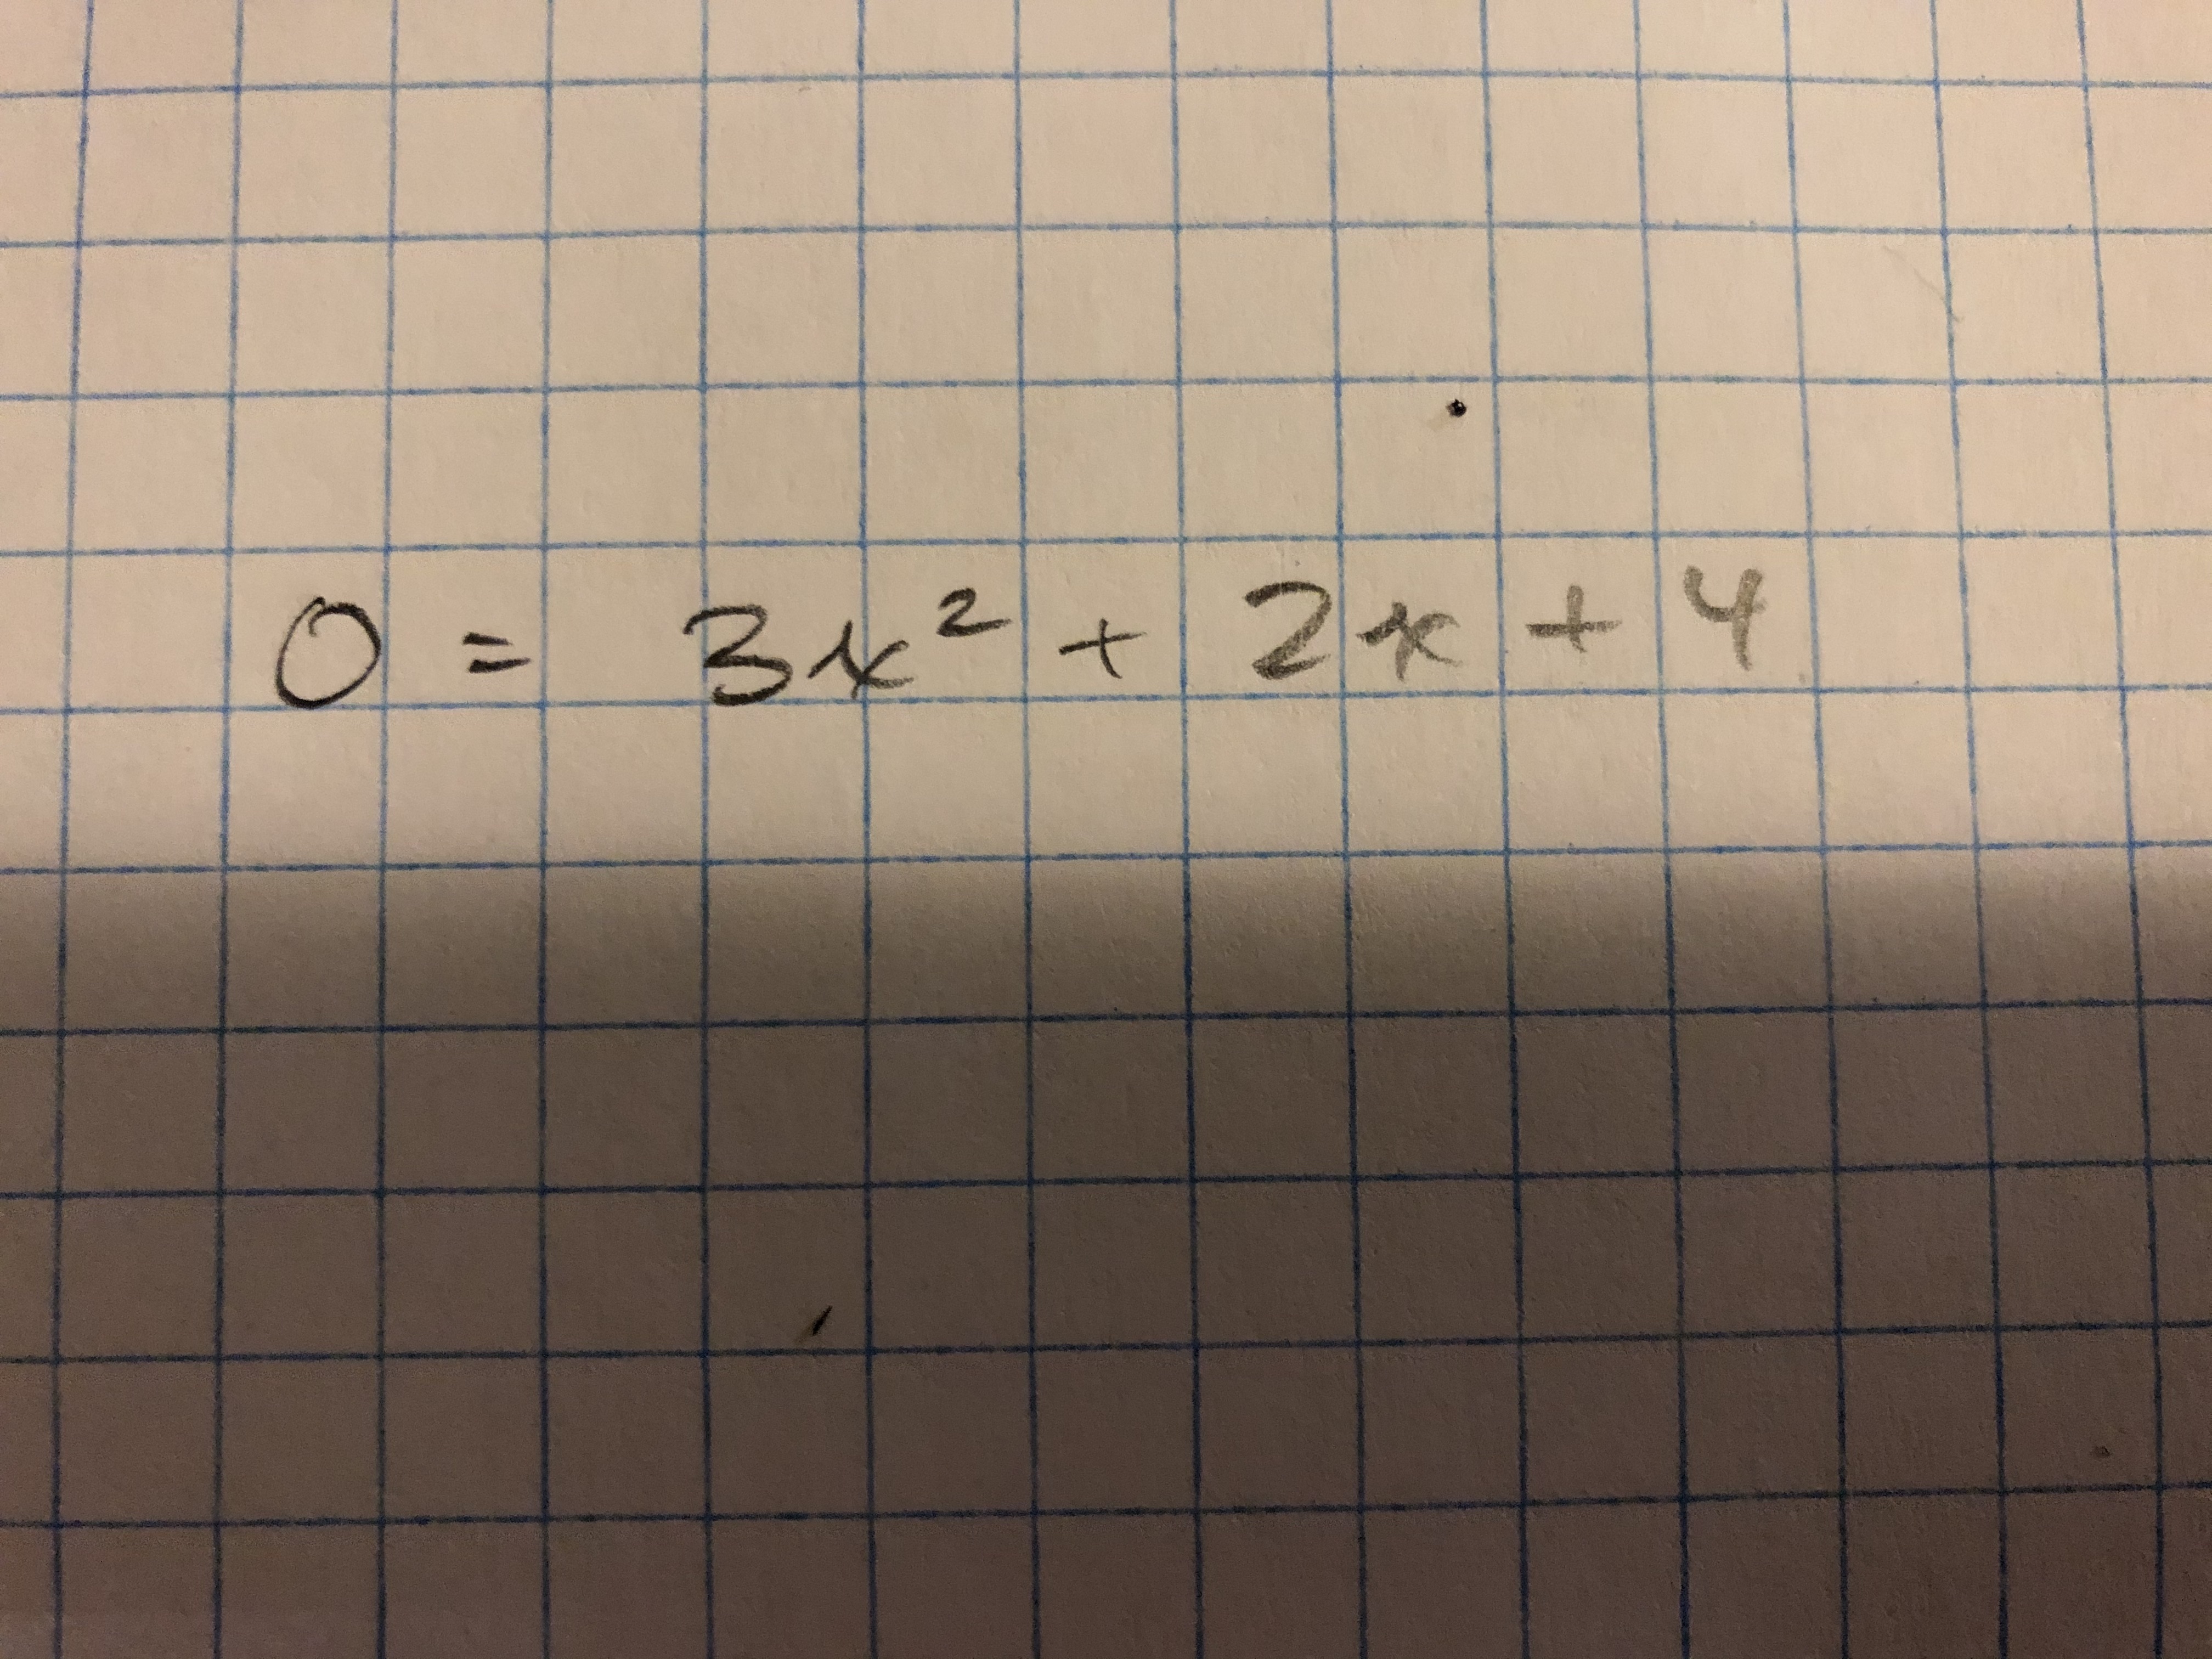 0 = 3x² + 2x + 4